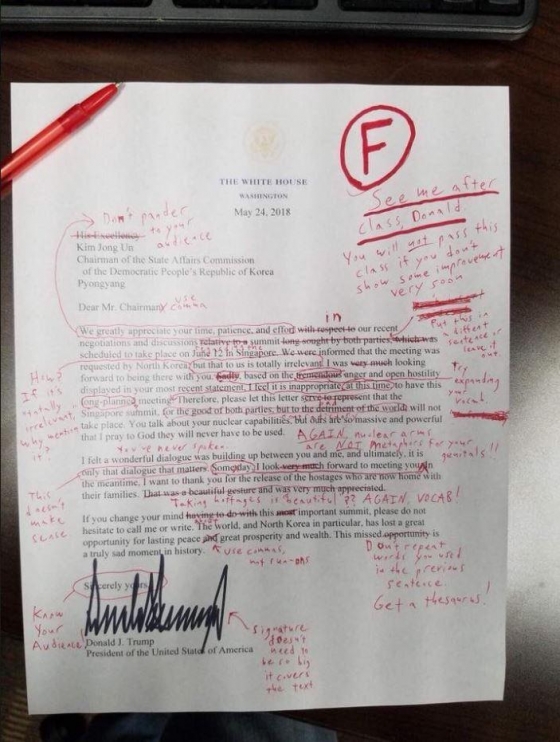 F
See me after
class, Donald.
You will not pass this
class if you don't
show some improvement
very soon
THE WHITE HOUSE
WASHINGTON
May 24, 2018
Don't pander
to your
audience
His Excellency
Kim Jong Un
Chairman of the State Affairs Commission
of the Democratic People's Republic of Korea
Pyongyang
Dear Mr. Chairman:
use
comma
in
We greatly appreciate your time, patience, and effort with respect to our recent
negotiations and discussions relative to a summit long sought by both parties, which was
scheduled to take place on June 12 in Singapore. We were informed that the meeting was
requested by North Korea, but that to us is totally irrelevant. I was very much looking
forward to being there with you. Sadly, based on the tremendous anger and open hostility
displayed in your most recent statement, I feel it is inappropriate, at this time, to have this
long-planned meeting. Therefore, please let this letter serve to represent that the
Singapore summit, for the good of both parties, but to the detriment of the world, will not
take place. You talk about your nuclear capabilities, but ours are so massive and powerful
that I pray to God they will never have to be used.
Put this in
different
sentence or
leave it
out.
Try
expanding
your
vocab.
How?
If it's
totally
irrelevant,
why mention
it?
AGAIN, nuclear arms
are NOT metaphors for your
genitals!!
You've never spoken.
I felt a wonderful dialogue was building up between you and me, and ultimately, it is
only that dialogue that matters. Someday, I look very much forward to meeting you. In
the meantime, I want to thank you for the release of the hostages who are now home with
their families. That was a beautiful gesture and was very much appreciated.
This
doesn't
make
sense
Taking hostages is beautiful?? AGAIN, VOCAB!
If you change your mind having to do with this most important summit, please do not
hesitate to call me or write. The world, and North Korea in particular, has lost a great
opportunity for lasting peace and great prosperity and wealth. This missed opportunity is
a truly sad moment in history.
about
Use commas,
not run-ons
Don't repeat
words you used
in the previous
sentence.
Get a thesaurus!
Sincerely yours,
Know
Your
Audience!
Donald J. Trump
President of the United States of America
Signature
doesn't
need to
be so big
it covers
the text